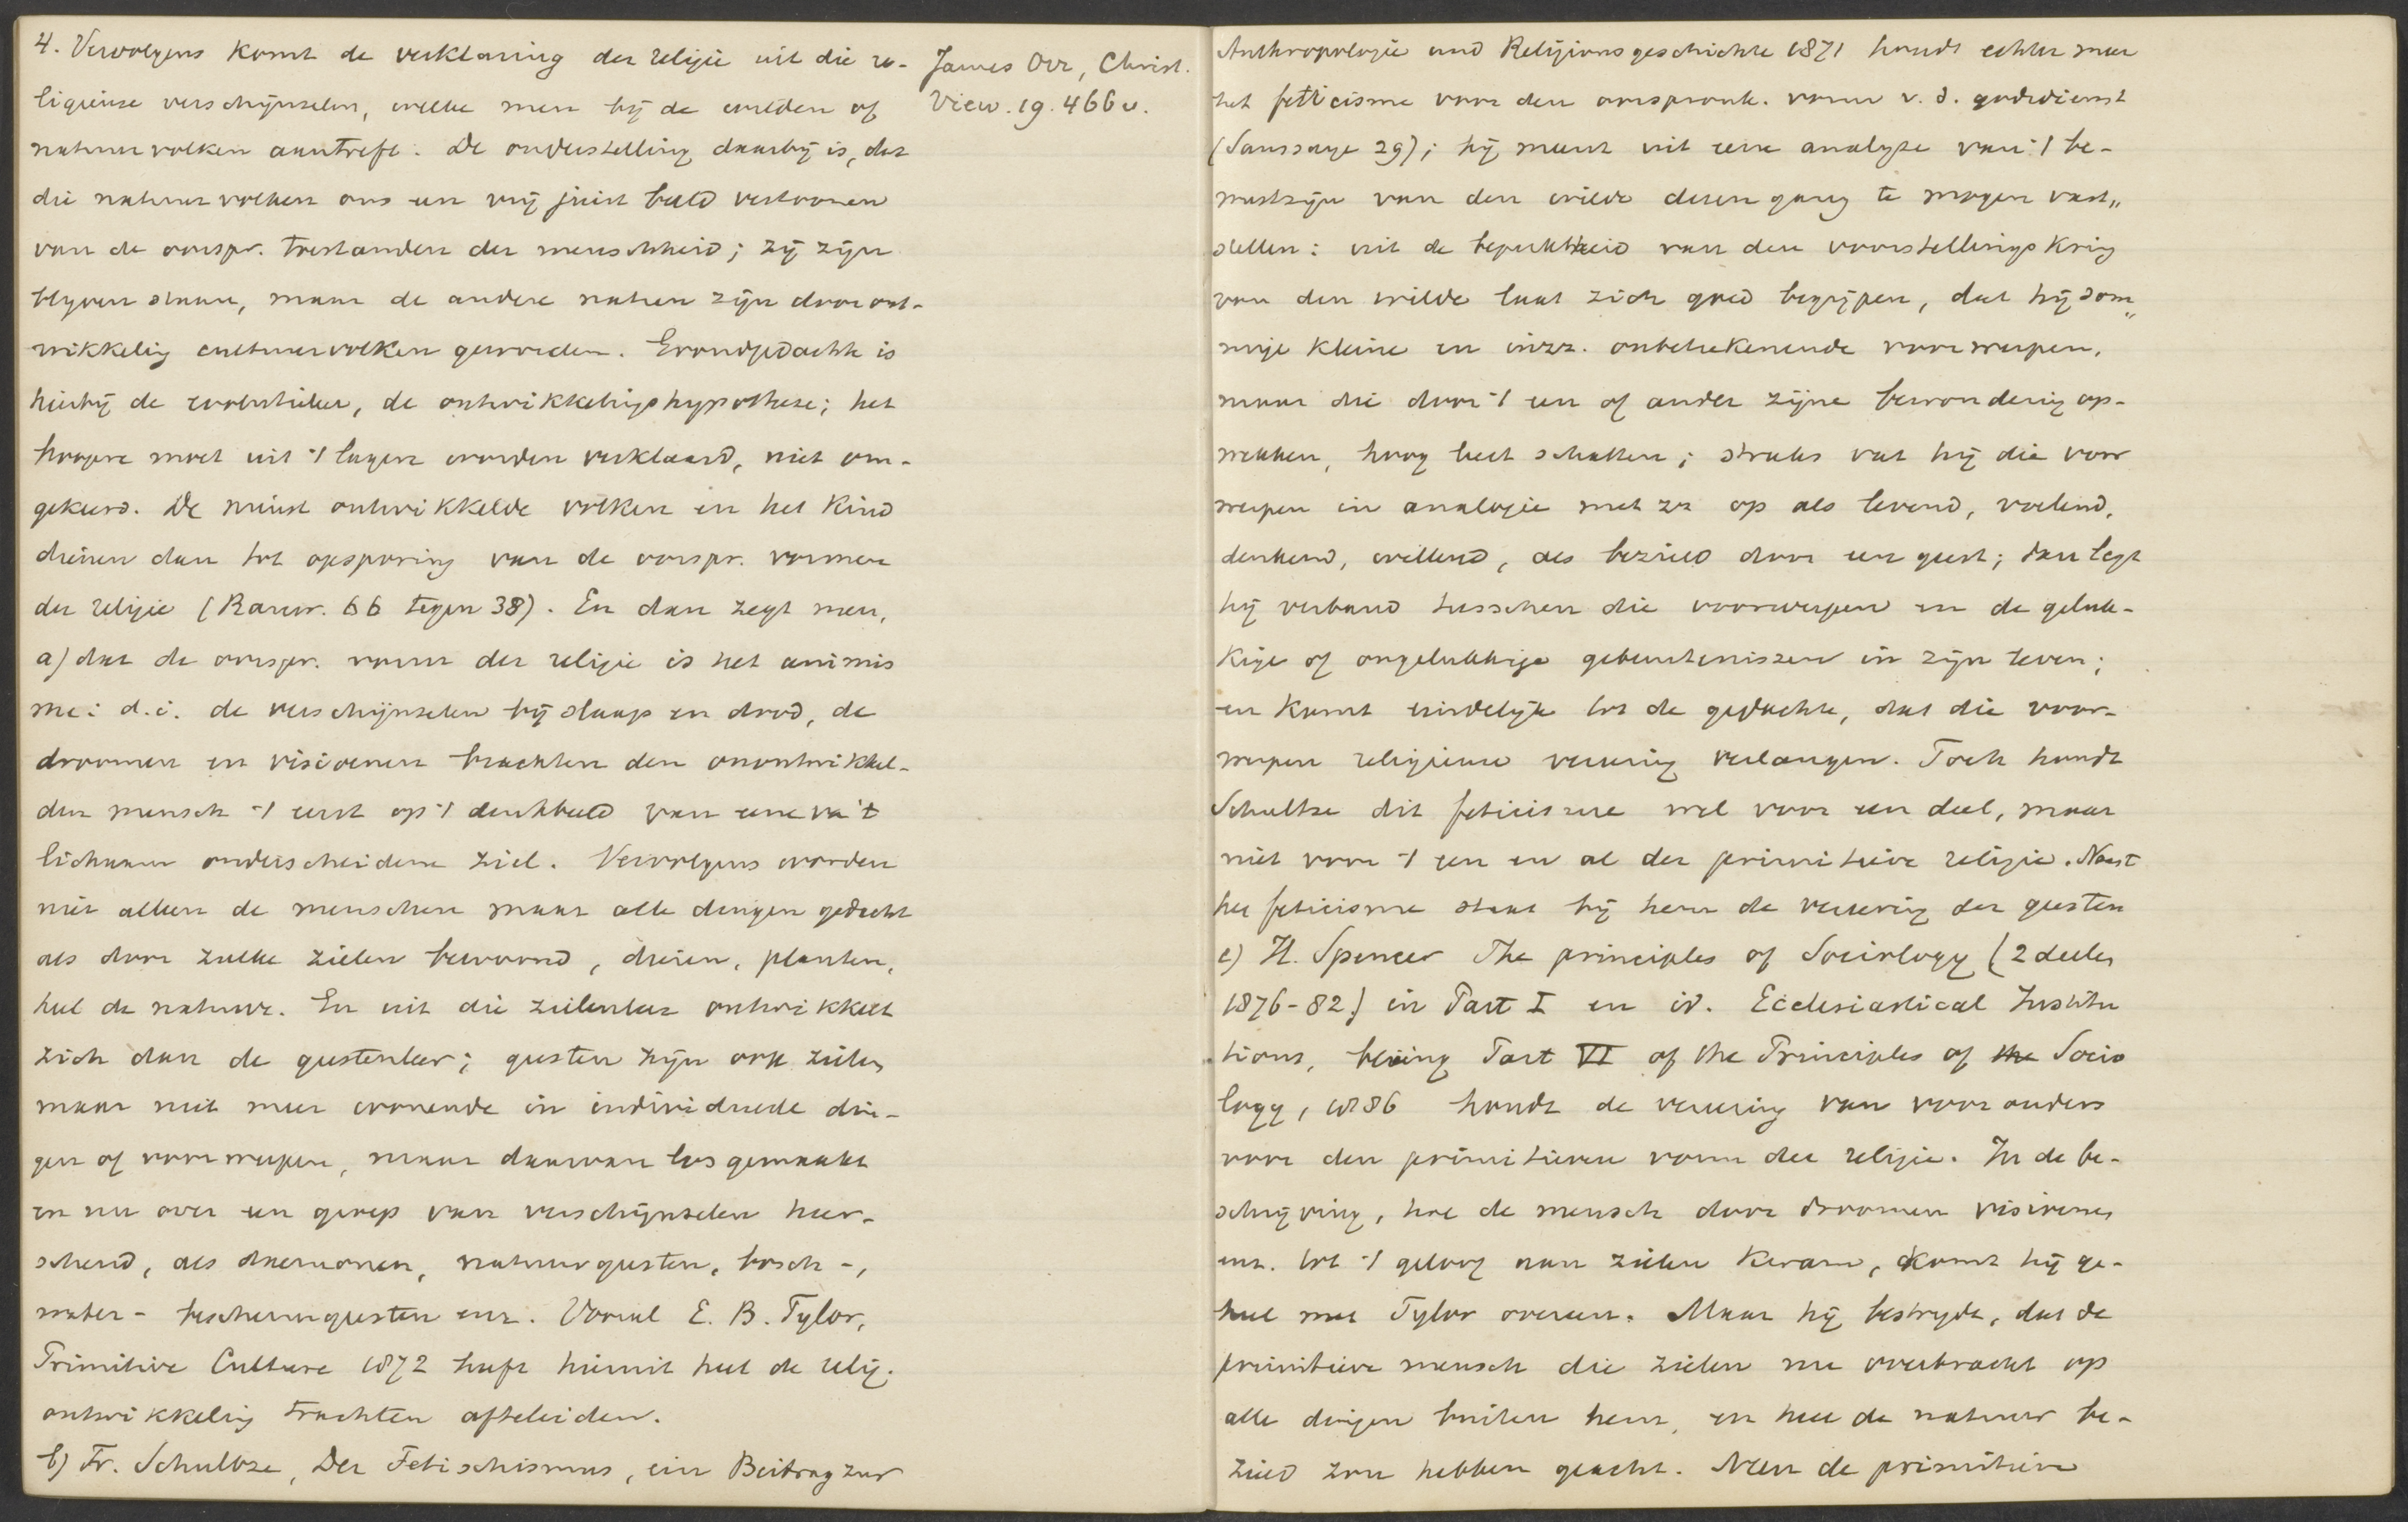 4. Vervolgens komt de verklaring der religie uit die re-
ligieuse verschijnselen, welke men bij de wilden of
natuurvolken aantreft. De onderstelling daarbij is, dat
die natuurvolken ons een vrij juist beeld vertoonen
van de oorspr. toestanden der menschheid; zij zijn
blijven staan, maar de andere natien zijn door ont-
wikkeling cultuurvolken geworden. Grondgedachte is
hierbij de evolutieleer, de ontwikkelingshypothese; het
hoogere moet uit 't lagere worden verklaard, niet om-
gekeerd. De minst ontwikkelde volken en het kind
dienen dan tot opsporing van de oorspr. vormen
der religie (Rauw. 66 tegen 38). En dan zegt men,
a) dat de oorspr. vorm der religie is het animis
me: d.i. de verschijnselen bij slaap en dood, de
droomen en visioenen brachten den onontwikkel-
den mensch 't eerst op 't denkbeeld van eene va 't
lichaam onderscheidene ziel. Vervolgens worden
niet alleen de menschen maar alle dingen gedacht
als door zulke zielen bewoond, dieren, planten,
heel de natuur. En uit die zielenleer ontwikkelt
zich dan de geestenleer; geesten zijn ook zielen
maar niet meer wonende in individueele din-
gen of voorwerpen, maar daarvan losgemaakt
en nu over een groep van verschijnselen heer-
schend, als daemonen, natuurgeesten, bosch-,
water- beschermgeesten enz. Vooral E. B. Tylor,
Primitive Culture 1872 heeft hieruit heel de relig.
ontwikkeling trachten afteleiden.
b) Fr. Schultze, Der Fetischismus, ein Beitrag zur
James Orr, Christ.
View. 19. 466 v.
Anthropologie und Religionsgeschichte 1871 houdt echter meer
het feticisme voor den oorspronk. vorm v. d. godsdienst
(Saussaye 29); hij meent uit eene analyse van 't be-
wustzijn van den wilde dezen gang te mogen vast„
stellen: uit de beperktheid van den voorstellingskring
van den wilde laat zich goed begrijpen, dat hij som„
mige kleine en inzz. onbeteekenende voorwerpen,
maar die door 't een of ander zijne bewondering op-
wekken, hoog leert schatten; straks vat hij die voor
werpen in analogie met zz op als levend, voelend,
denkend, willend, als bezield door een geest; dan legt
hij verband tusschen die voorwerpen en de geluk-
kige of ongelukkige gebeurtenissen in zijn leven;
en komt eindelijk tot de gedachte, dat die voor-
werpen religieuse vereering verlangen. Toch houdt
Schultze dit feticisme wel voor een deel, maar
niet voor 't een en al der primitieve religie. Naast
het feticisme staat bij hem de vereering der geesten
c) H. Spencer The principles of Sociology (2 deelen
1876-82) in Part I en id. Ecclesiastical Institu
tions, being Part VI of the Principles of the Socio
logy, 1886 houdt de vereering van voorouders
voor den primitieven vorm der religie. In de be-
schrijving, hoe de mensch door droomen visioenen
enz. tot 't geloof aan zielen kwam, komt hij ge-
heel met Tylor overeen. Maar hij bestrijdt, dat de
primitieve mensch die zielen nu overbracht op
alle dingen buiten hem, en heel de natuur be-
zield zou hebben geacht. Neen de primitieve